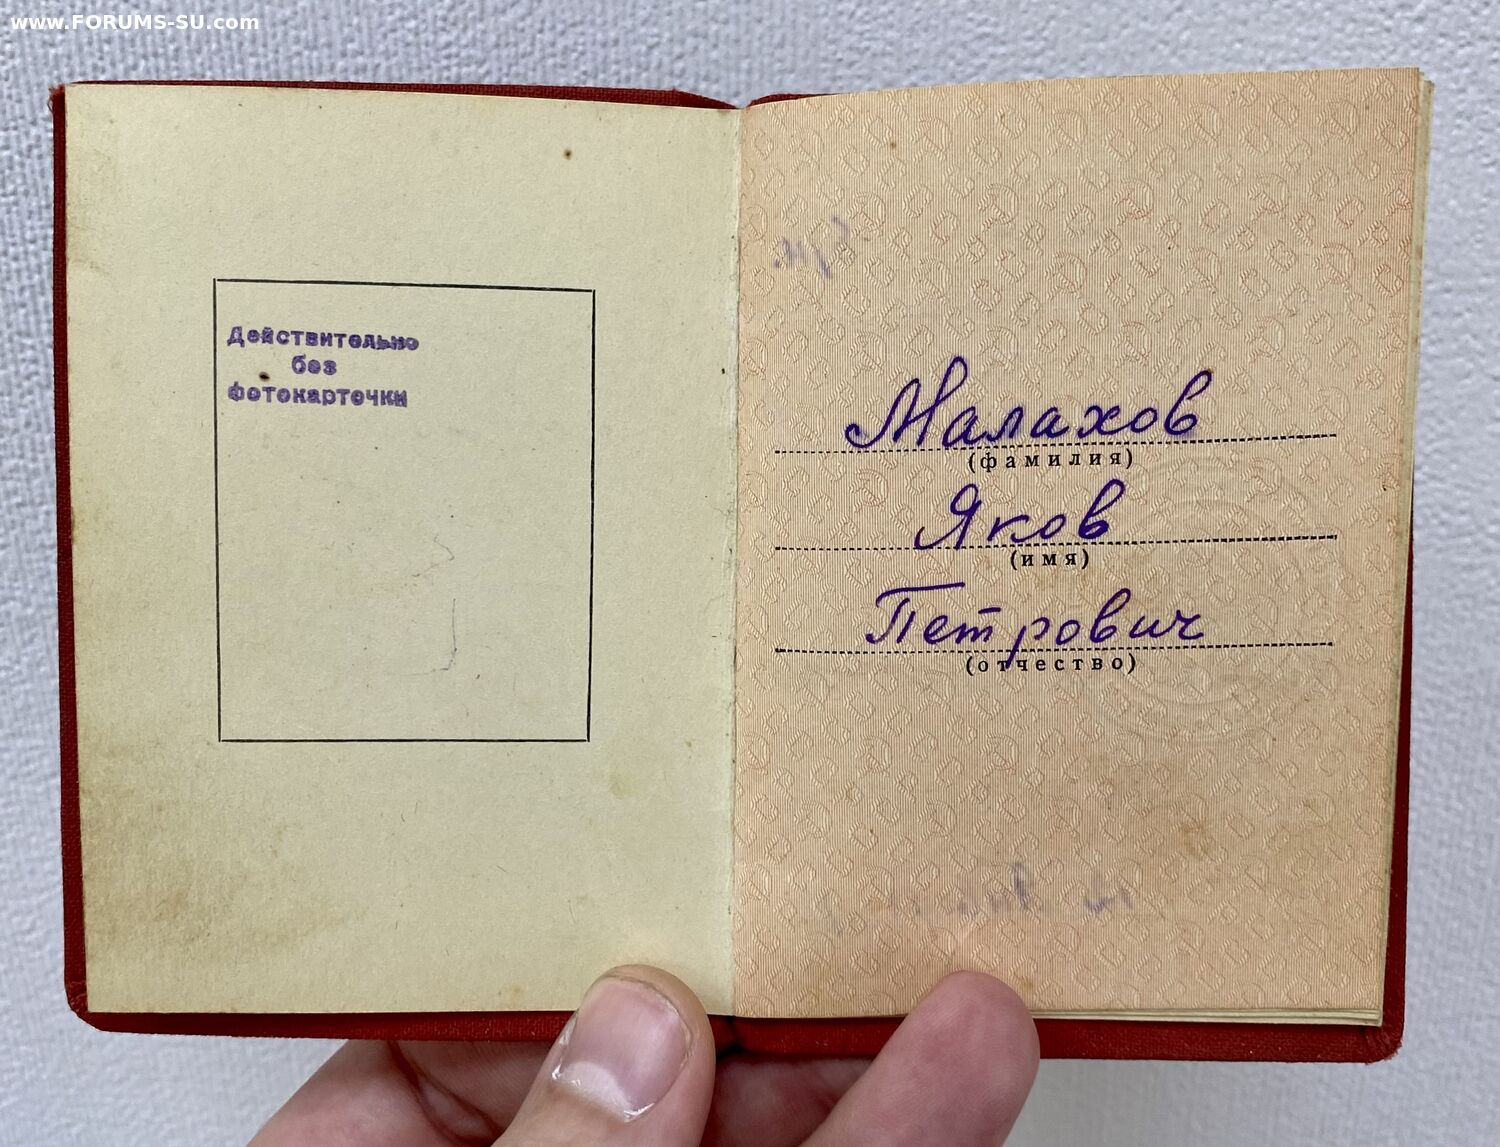 www.FORUMS-SU.com
Действительно
без
фотокарточки
Малахов
(фамилия)
Яков
(имя)
Петрович
(отчество)